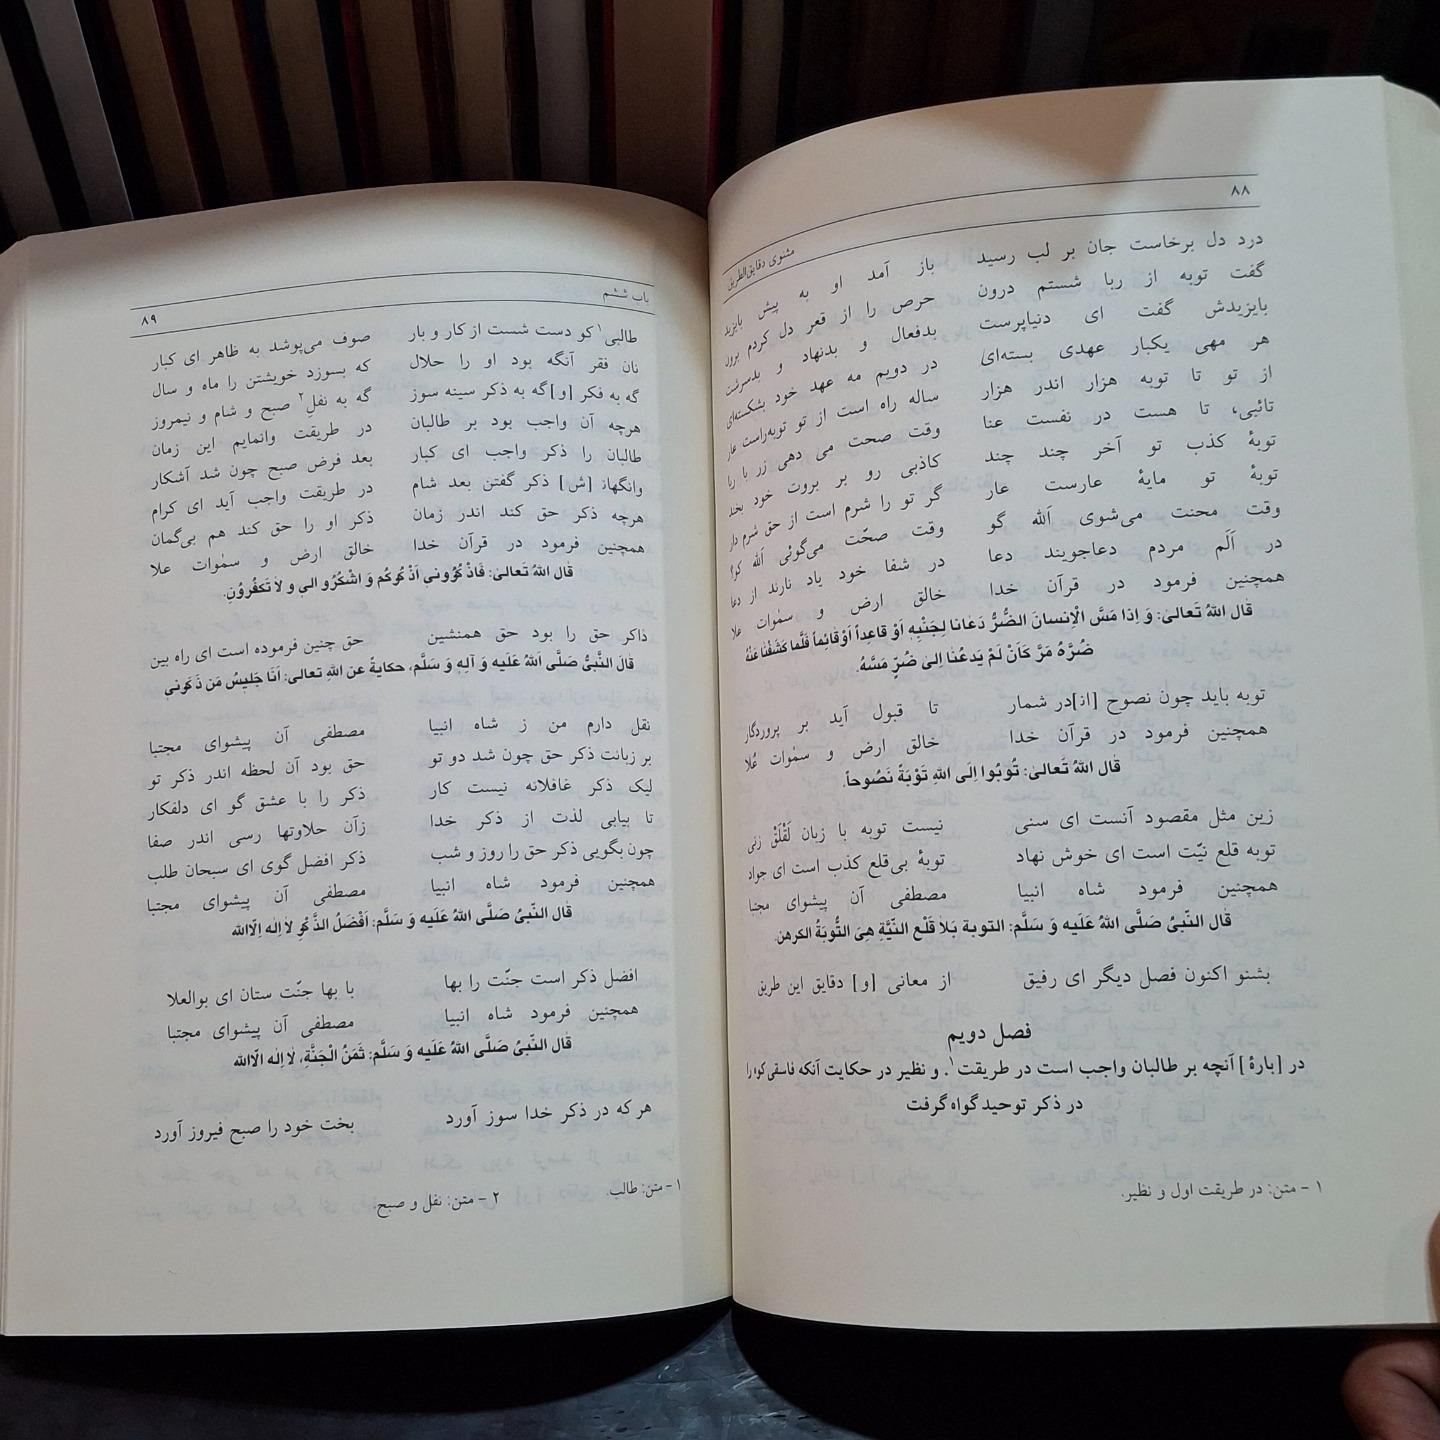 ۸۸
مثنوی دقایق‌الطریق
درد دل برخاست جان بر لب رسید باز آمد او به پیش بایزید
گفت توبه از ربا شستم درون حرص را از قعر دل کردم برون
بایزیدش گفت ای دنیاپرست بدفعال و بدنهاد و بدسرشت
هر مهی یکبار عهدی بسته‌ای در دویم مه عهد خود بشکسته‌ای
از تو تا توبه هزار اندر هزار ساله راه است از تو توبه‌راست عار
تائبی، تا هست در نفست عنا وقت صحت می دهی زر با ربا
توبهٔ کذب تو آخر چند چند کاذبی رو بر بروت خود بخند
توبهٔ تو مایهٔ عارست عار گر تو را شرم است از حق شرم دار
وقت محنت می‌شوی اَللّه گو وقت صحّت می‌گوئی اَللّه کو؟
در اَلَم مردم دعاجویند دعا در شفا خود یاد نارند از دعا
همچنین فرمود در قرآن خدا خالق ارض و سمٰوات علا
قٰال اللهُ تَعالیٰ: وَ اِذا مَسَّ الْاِنسانَ الضُّرُّ دَعٰانا لِجَنْبِهِ اَوْ قاعِداً اَوْقٰائِماً فَلَّما کَشَفْنا عَنْهُ
ضُرَّهُ مَرَّ کَاَنْ لَمْ یَدعُنٰا اِلیٰ ضُرٍّ مَسَّهُ.
توبه باید چون نصوح [ان]در شمار تا قبول آید بر پروردگار
همچنین فرمود در قرآن خدا خالق ارض و سمٰوات عُلا
قٰال اللهُ تَعالیٰ: تُوبُوا اِلَی اللهِ تَوْبَةً نَصُوحاً.
زین مثل مقصود آنست ای سنی نیست توبه با زبان لَقْلَقْ زنی
توبه قلع نیّت است ای خوش نهاد توبهٔ بی‌قلع کذب است ای جواد
همچنین فرمود شاه انبیا مصطفی آن پیشوای مجتبا
قٰال النّبیُ صَلَّی اللهُ عَلَیه وَ سَلَّم: التوبة بَلاٰ قَلْعِ النّیَّةِ هِیَ التُّوبَةُ الکرهن.
بشنو اکنون فصل دیگر ای رفیق از معانی [و] دقایق این طریق
فصل دویم
در [بارهٔ] آنچه بر طالبان واجب است در طریقت۱. و نظیر در حکایت آنکه فاسقی کوه را
در ذکر توحید گواه گرفت
۱ – متن: در طریقت اول و نظیر.
باب ششم
۸۹
طالبی۱ کو دست شست از کار و بار صوف می‌پوشد به ظاهر ای کبار
نان فقر آنگه بود او را حلال که بسوزد خویشتن را ماه و سال
گه به فکر [و]گه به ذکر سینه سوز گه به نفلِ۲ صبح و شام و نیمروز
هرچه آن واجب بود بر طالبان در طریقت وانمایم این زمان
طالبان را ذکر واجب ای کبار بعد فرض صبح چون شد آشکار
وانگهاز [ش] ذکر گفتن بعد شام در طریقت واجب آید ای کرام
هرچه ذکر حق کند اندر زمان ذکر او را حق کند هم بی‌گمان
همچنین فرمود در قرآن خدا خالق ارض و سمٰوات علا
قٰال اللهُ تَعالیٰ: فَاذْکُرُونی اَذْکُرْکُم وَ اشْکُرُو الیٖ وَ لاٰ تَکفُرُونِ.
ذاکر حق را بود حق همنشین حق چنین فرموده است ای راه بین
قٰالَ النَّبیُّ صَلَّی اللهُ عَلَیه وَ آلِهِ وَ سَلَّم، حکایةً عن اللهِ تعالی: اَنَا جَلیسُ مَن ذَکَونی
نقل دارم من ز شاه انبیا مصطفی آن پیشوای مجتبا
بر زبانت ذکر حق چون شد دو تو حق بود آن لحظه اندر ذکر تو
لیک ذکر غافلانه نیست کار ذکر را با عشق گو ای دلفکار
تا بیابی لذت از ذکر خدا زآن حلاوتها رسی اندر صفا
چون بگویی ذکر حق را روز و شب ذکر افضل گوی ای سبحان طلب
همچنین فرمود شاه انبیا مصطفی آن پیشوای مجتبا
قٰال النّبیُ صَلَّی اللهُ عَلَیه وَ سَلَّم: اَفْضَلُ الذِّکْرِ لاٰ اِلٰه اِلّاالله
افضل ذکر است جنّت را بها با بها جنّت ستان ای بوالعلا
همچنین فرمود شاه انبیا مصطفی آن پیشوای مجتبا
قٰال النّبیُ صَلَّی اللهُ عَلَیه وَ سَلَّم: ثَمَنُ الْجَنَّةِ، لاٰ اِلٰه الّاالله
هر که در ذکر خدا سوز آورد بخت خود را صبح فیروز آورد
۱ – متن: طالب. ۲ – متن: نفل و صبح.